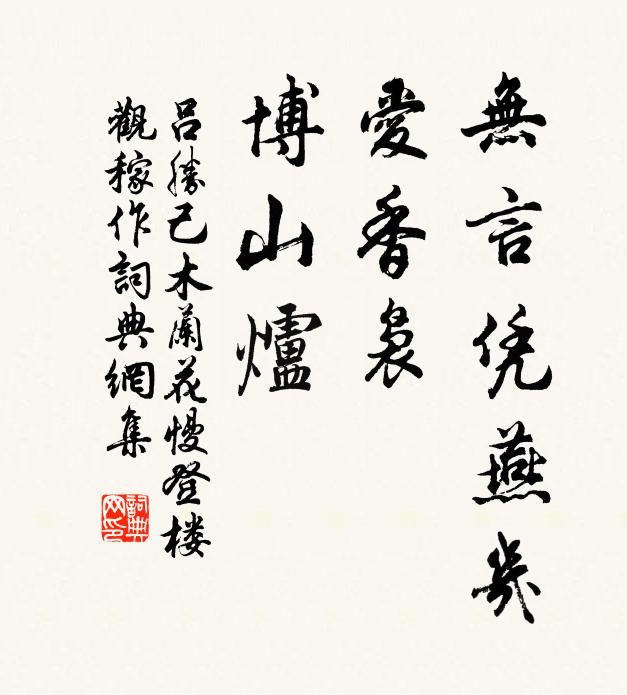 無言凭燕几
愛香裊
博山爐
呂勝己木蘭花慢登楼
觀稼作詞典網集
詞典网印